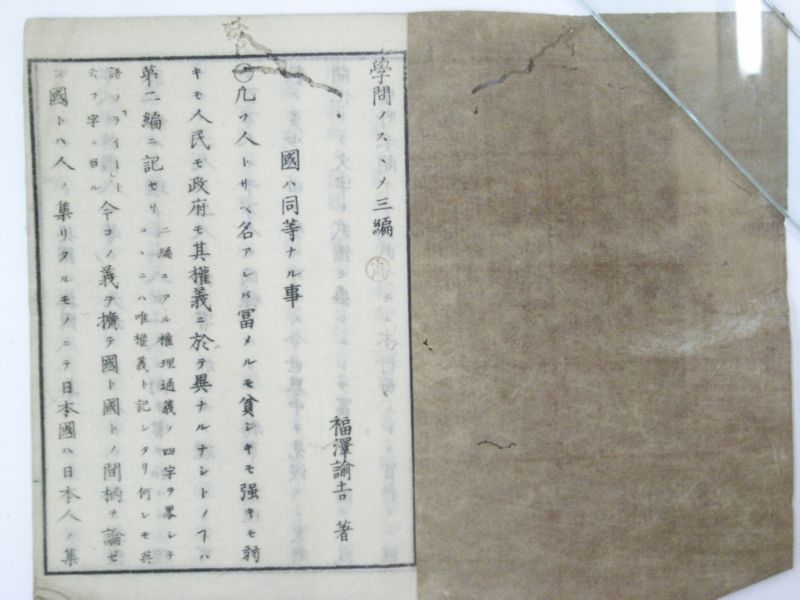 學問ノスヽメ三編
福澤諭吉 著
國ハ同等ナル事
凡ソ人トサヘ名アレバ冨メルモ貧シキモ强キモ弱
キモ人民モ政府モ其權義ニ於テ異ナルナシトノヿハ
第二編ニ記セリ二編ニアル權理通義ノ四字ヲ畧シテコヽニハ唯權義ト記シタリ何レモ英
語ノ「ライート」ト云フ字ニ當ル今コノ義ヲ擴テ國ト國トノ間柄ヲ論ゼ
ン國トハ人ノ集リタルモノニテ日本國ハ日本人ノ集